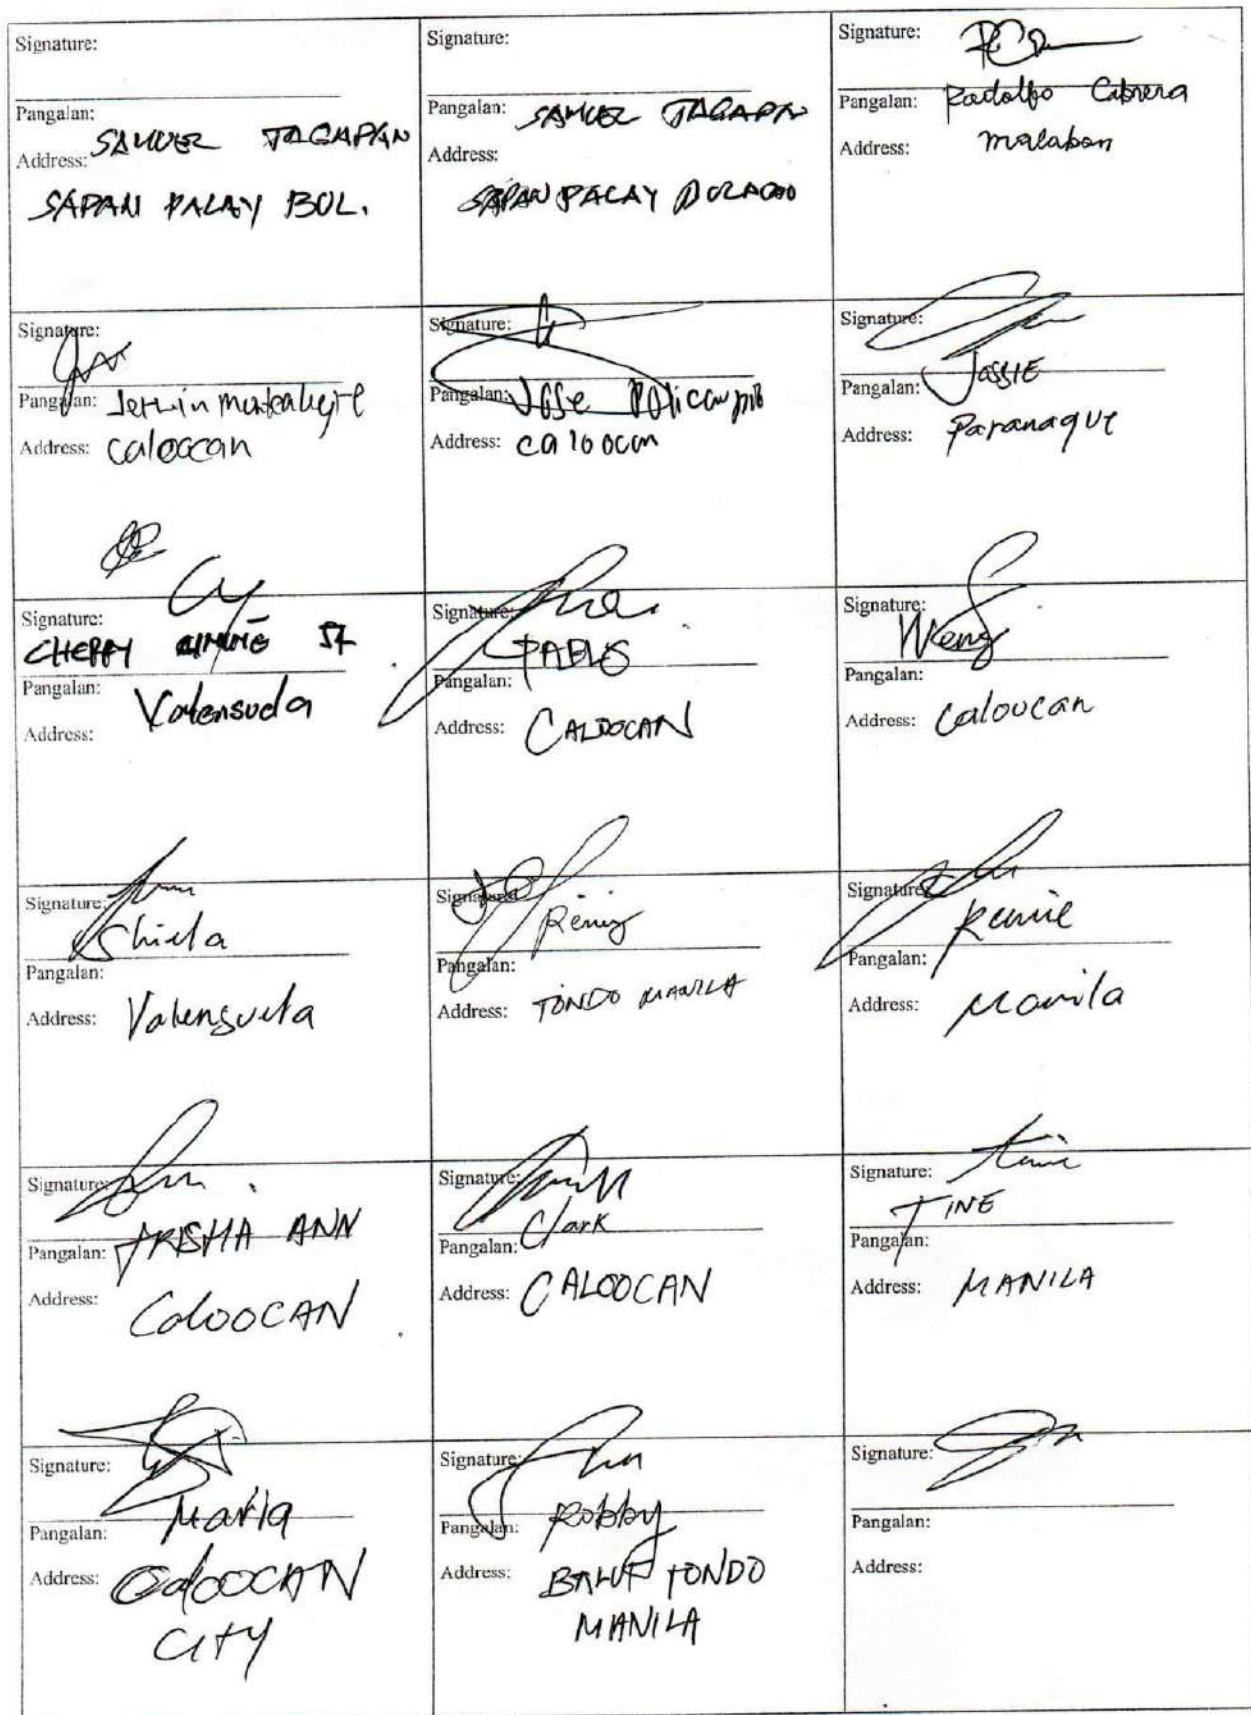 Signature:
Pangalan:
SAMUEL TAGAPAN
Address:
SAPAN PALAY BUL.
Signature:
Pangalan: SAMUEL TAGAPAN
Address:
SAPAN PALAY BULACAN
Signature:
Pangalan: Rodolfo Cabrera
Address: malabon
Signature:
Pangalan: Jerwin
Address: caloocan
Signature:
Pangalan: Jose Policarpio
Address: caloocan
Signature:
Pangalan: JASSIE
Address: Paranaque
Signature:
CHERRY
Pangalan:
Address:
Signature:
PABLO
Pangalan:
Address: CALOOCAN
Signature:
Weng
Pangalan:
Address: caloocan
Signature:
Shiela
Pangalan:
Address: Valenzuela
Signature:
Remy
Pangalan:
Address: TONDO MANILA
Signature:
Pangalan:
Address: Manila
Signature:
Pangalan: TRISHA ANN
Address: CalOOCAN
Signature:
Clark
Pangalan:
Address: CALOOCAN
Signature:
TINE
Pangalan:
Address: MANILA
Signature:
Pangalan: Maria
Address: CalOOCAN
CITY
Signature:
Pangalan: Robby
Address: BALUT TONDO
MANILA
Signature:
Pangalan:
Address: